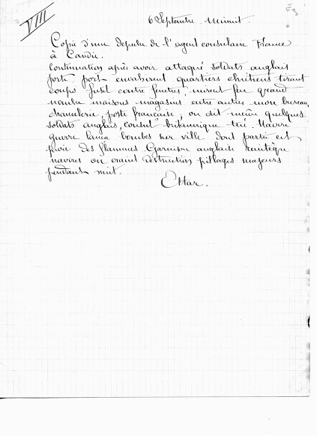 VIII
6 Septembre. Minuit.
Copie d'une depeche de l'agent consulaire France
à Candie.
Continuation après avoir attaqué soldats anglais
porte port envahirent quartiers chrétiens tirant
coups fusil contre fenêtres, mirent feu grand
nombre maisons magasins entre autres mon bureau,
chancellerie, poste française, on dit même quelques
soldats anglais, consul britannique tué. Navire
guerre lança bombes sur ville dont partie est
proie des flammes Garnison anglaise
navires on craint destruction pillages majeurs
pendant nuit.